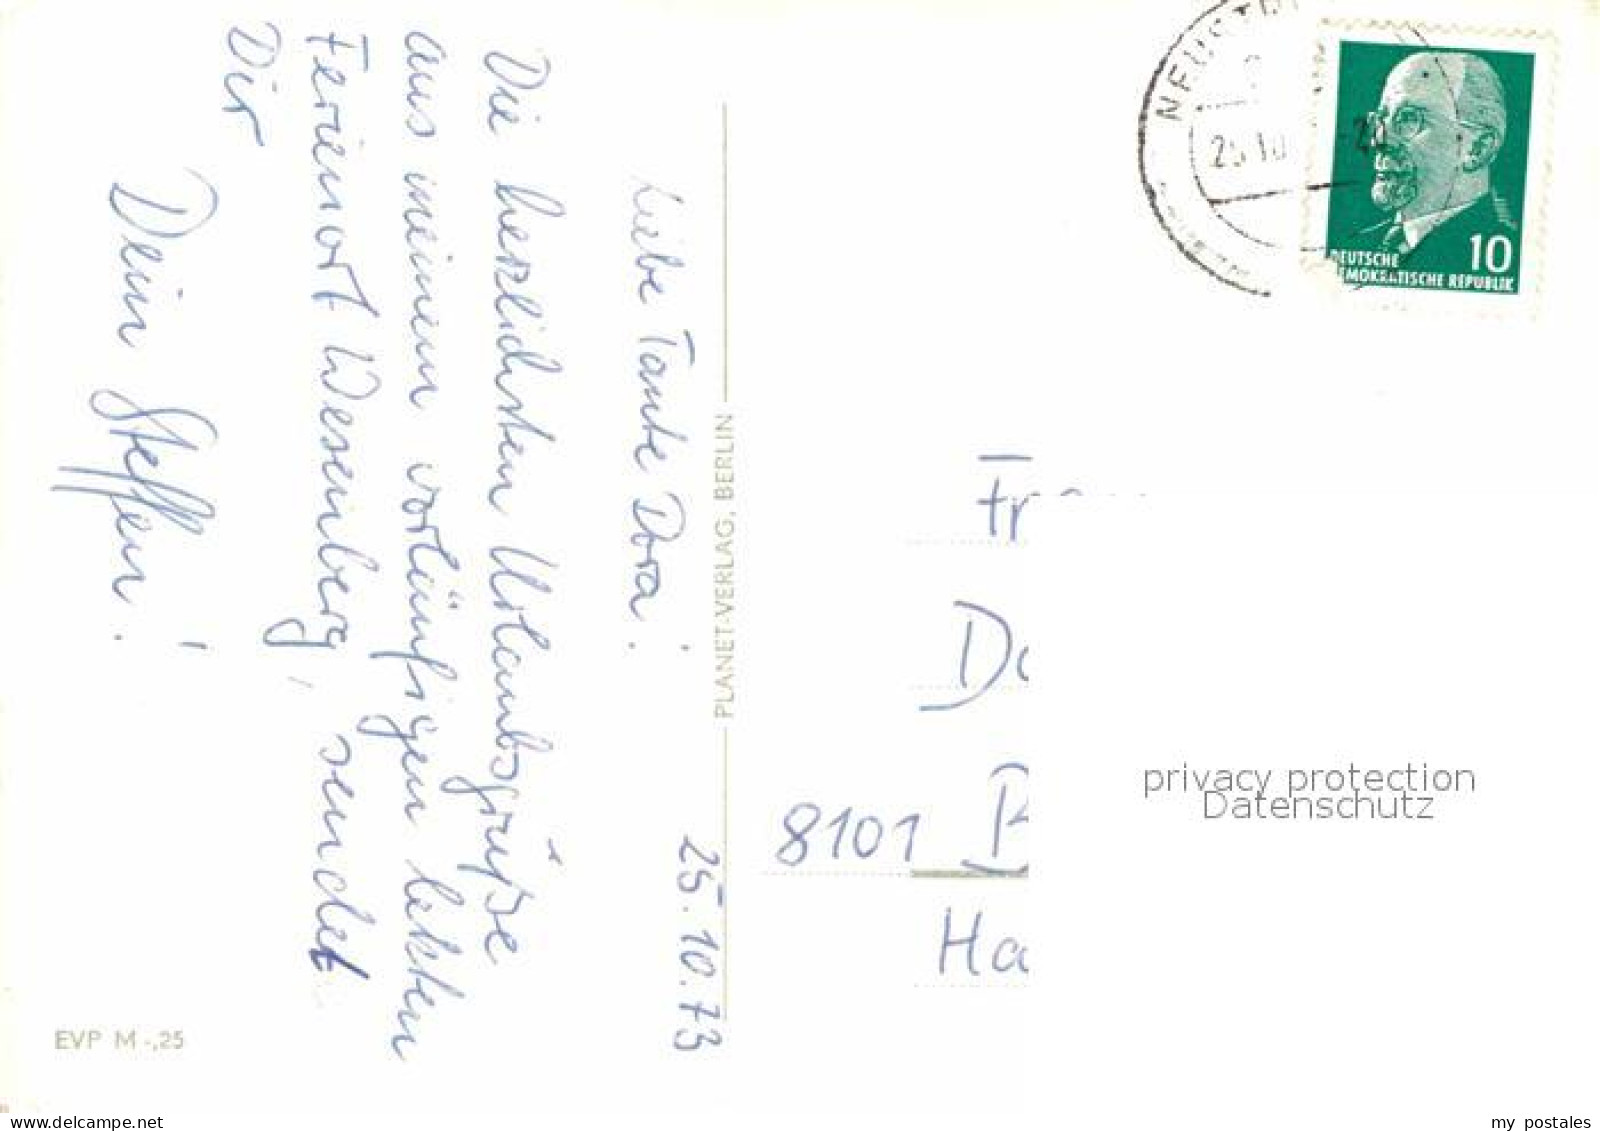 25.10.73
Liebe Tante Dora!
Die herzlichsten Urlaubsgrüße
aus meinem vorläufigen letzten
Ferienort Wesenberg, sendet
Dir
Dein Steffen!
EVP M -,25
PLANET-VERLAG, BERLIN
NEUST
25.10
-20
10
DEUTSCHE
DEMOKRATISCHE REPUBLIK
Fr
Do
8101 B
Ha
privacy protection
Datenschutz
www.delcampe.net
my_postales